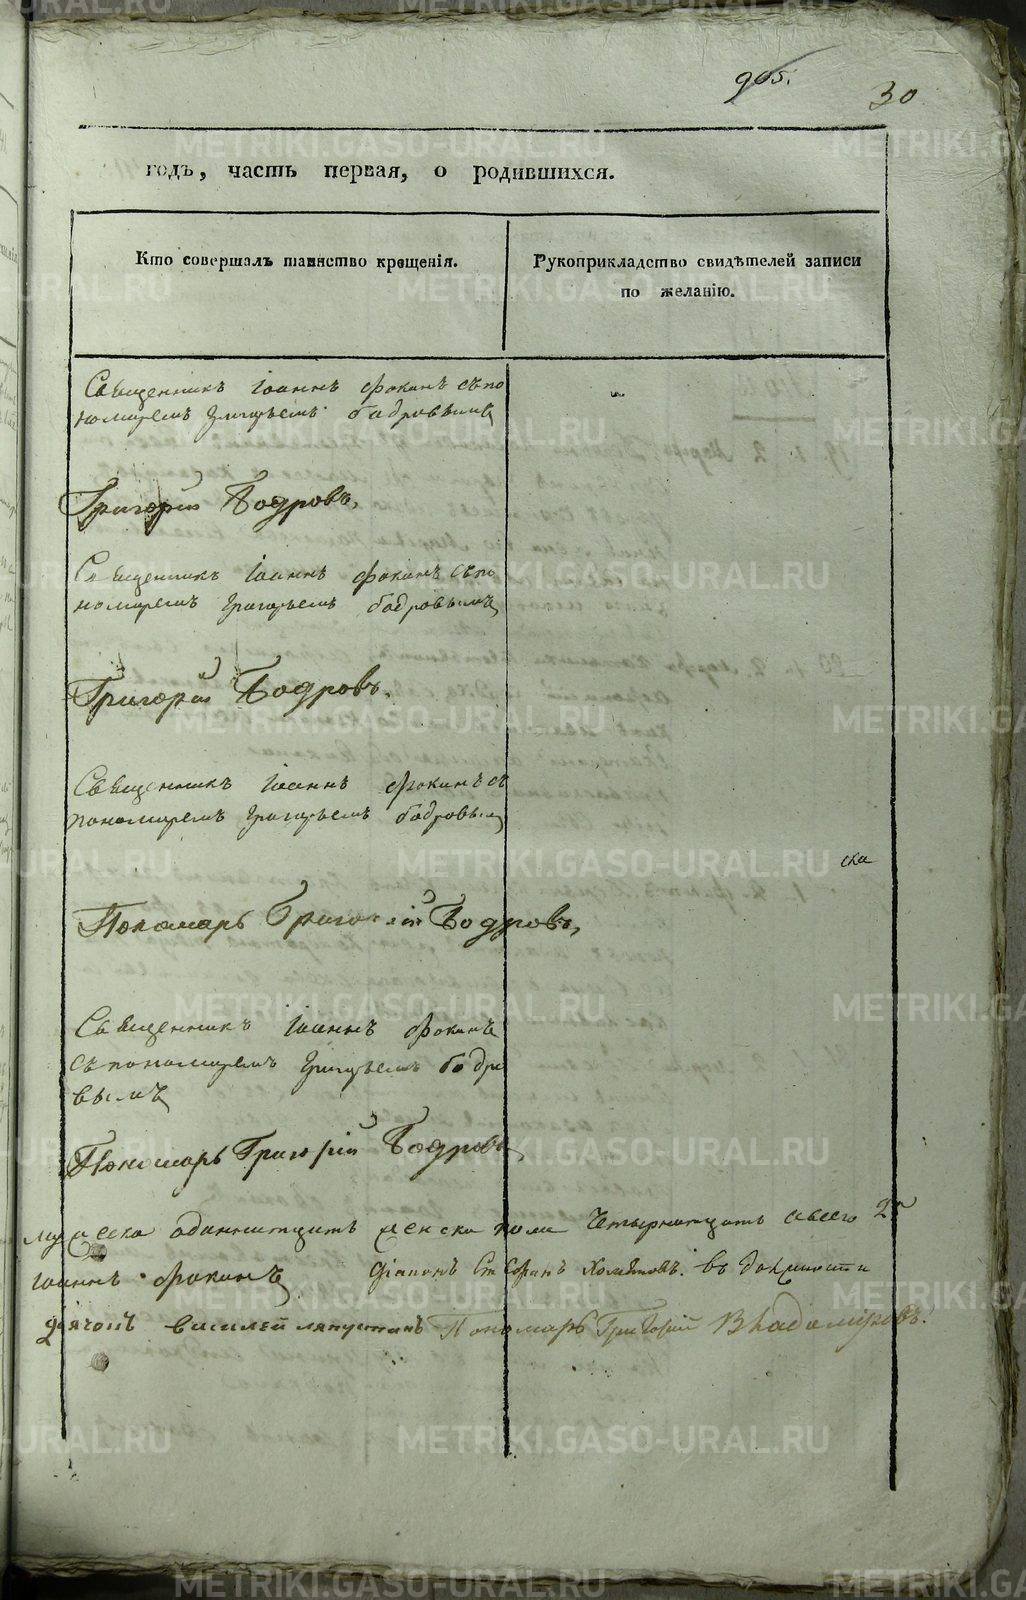 965.
30
годъ, часть первая, о родившихся.
Кто совершалъ таинство крещенія.
Рукоприкладство свидѣтелей записи
по желанію.
Священникъ Іоаннъ Фокинъ съ по
номаремъ Григорьемъ бодровымъ
Григорій Бодровъ,
Священникъ Іоаннъ Фокинъ съ по
номаремъ Григорьемъ бодровымъ
Григорій Бодровъ.
Священникъ Іоаннъ Фокинъ съ
пономаремъ Григорьемъ бодровым
ска
Пономарь Григорій Бодровъ,
Священникъ Іоаннъ Фокинъ
съ пономаремъ Григорьемъ бодро
вымъ
Пономарь Григорій Бодровъ
одиннатцать женска пола Четырнатцать а всего 25
Іоаннъ Фокинъ Діаконъ Стефанъ въ должности
дьячогъ василей Пономарь Григорій
METRIKI.GASO-URAL.RU